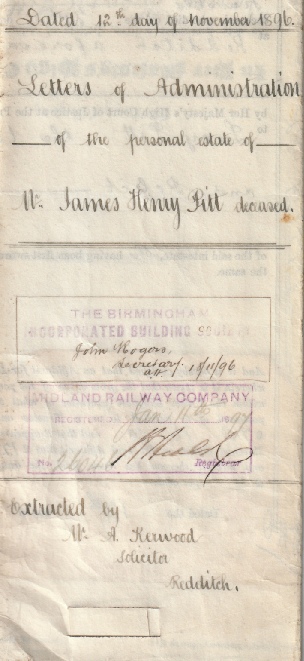 Dated 12th day of November 1896.
Letters of Administration
of the personal estate of
Mr. James Henry Pitt deceased.
THE BIRMINGHAM
INCORPORATED BUILDING SOCIETY
John Rogers,
Secretary.
MIDLAND RAILWAY COMPANY.
REGISTERED Jan 11th 1897
No.
Registrar
Extracted by
Mr. A. Kerwood
Solicitor
Redditch.